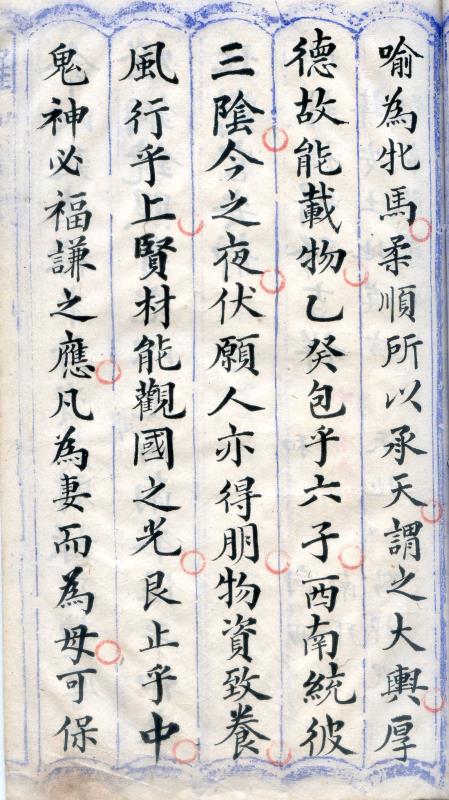 喻為牝馬柔順所以承天謂之大輿厚
德故能載物乙癸包乎六子西南統彼
三陰今之夜伏願人亦得朋物資致養
風行乎上賢材能觀國之光艮止乎中
鬼神必福謙之應凡為妻而為母可保